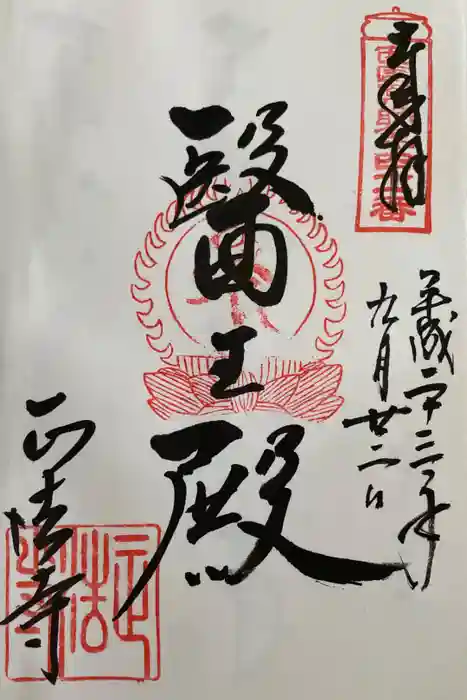 奉拝
平成二十三年
九月廿二日
醫王殿
正法寺